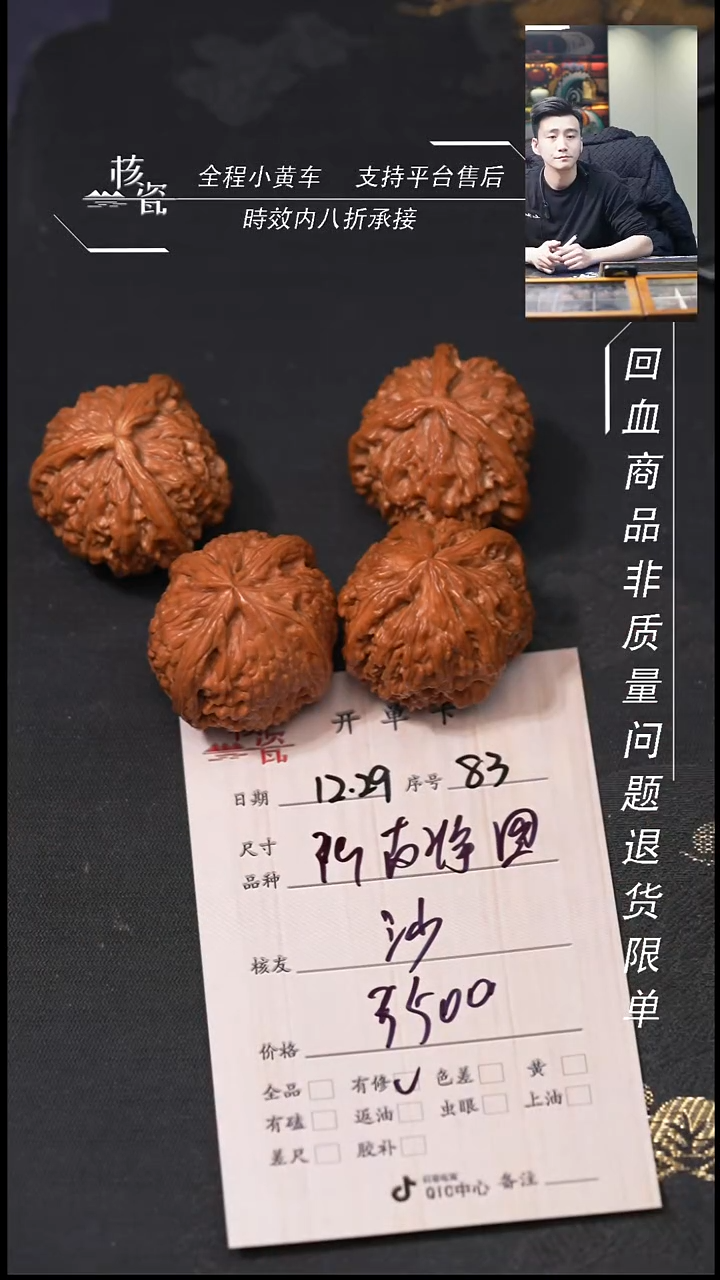 核瓷
全程小黄车 支持平台售后
時效内八折承接
回血商品非质量问题退货限单
瓷
开单卡
日期 12.29 序号 83
尺寸
品种
核友 沙
价格 3500
全品 有修 ✓ 色差 黄
有磕 返油 虫眼 上油
差尺 胶补
QIC中心 备注